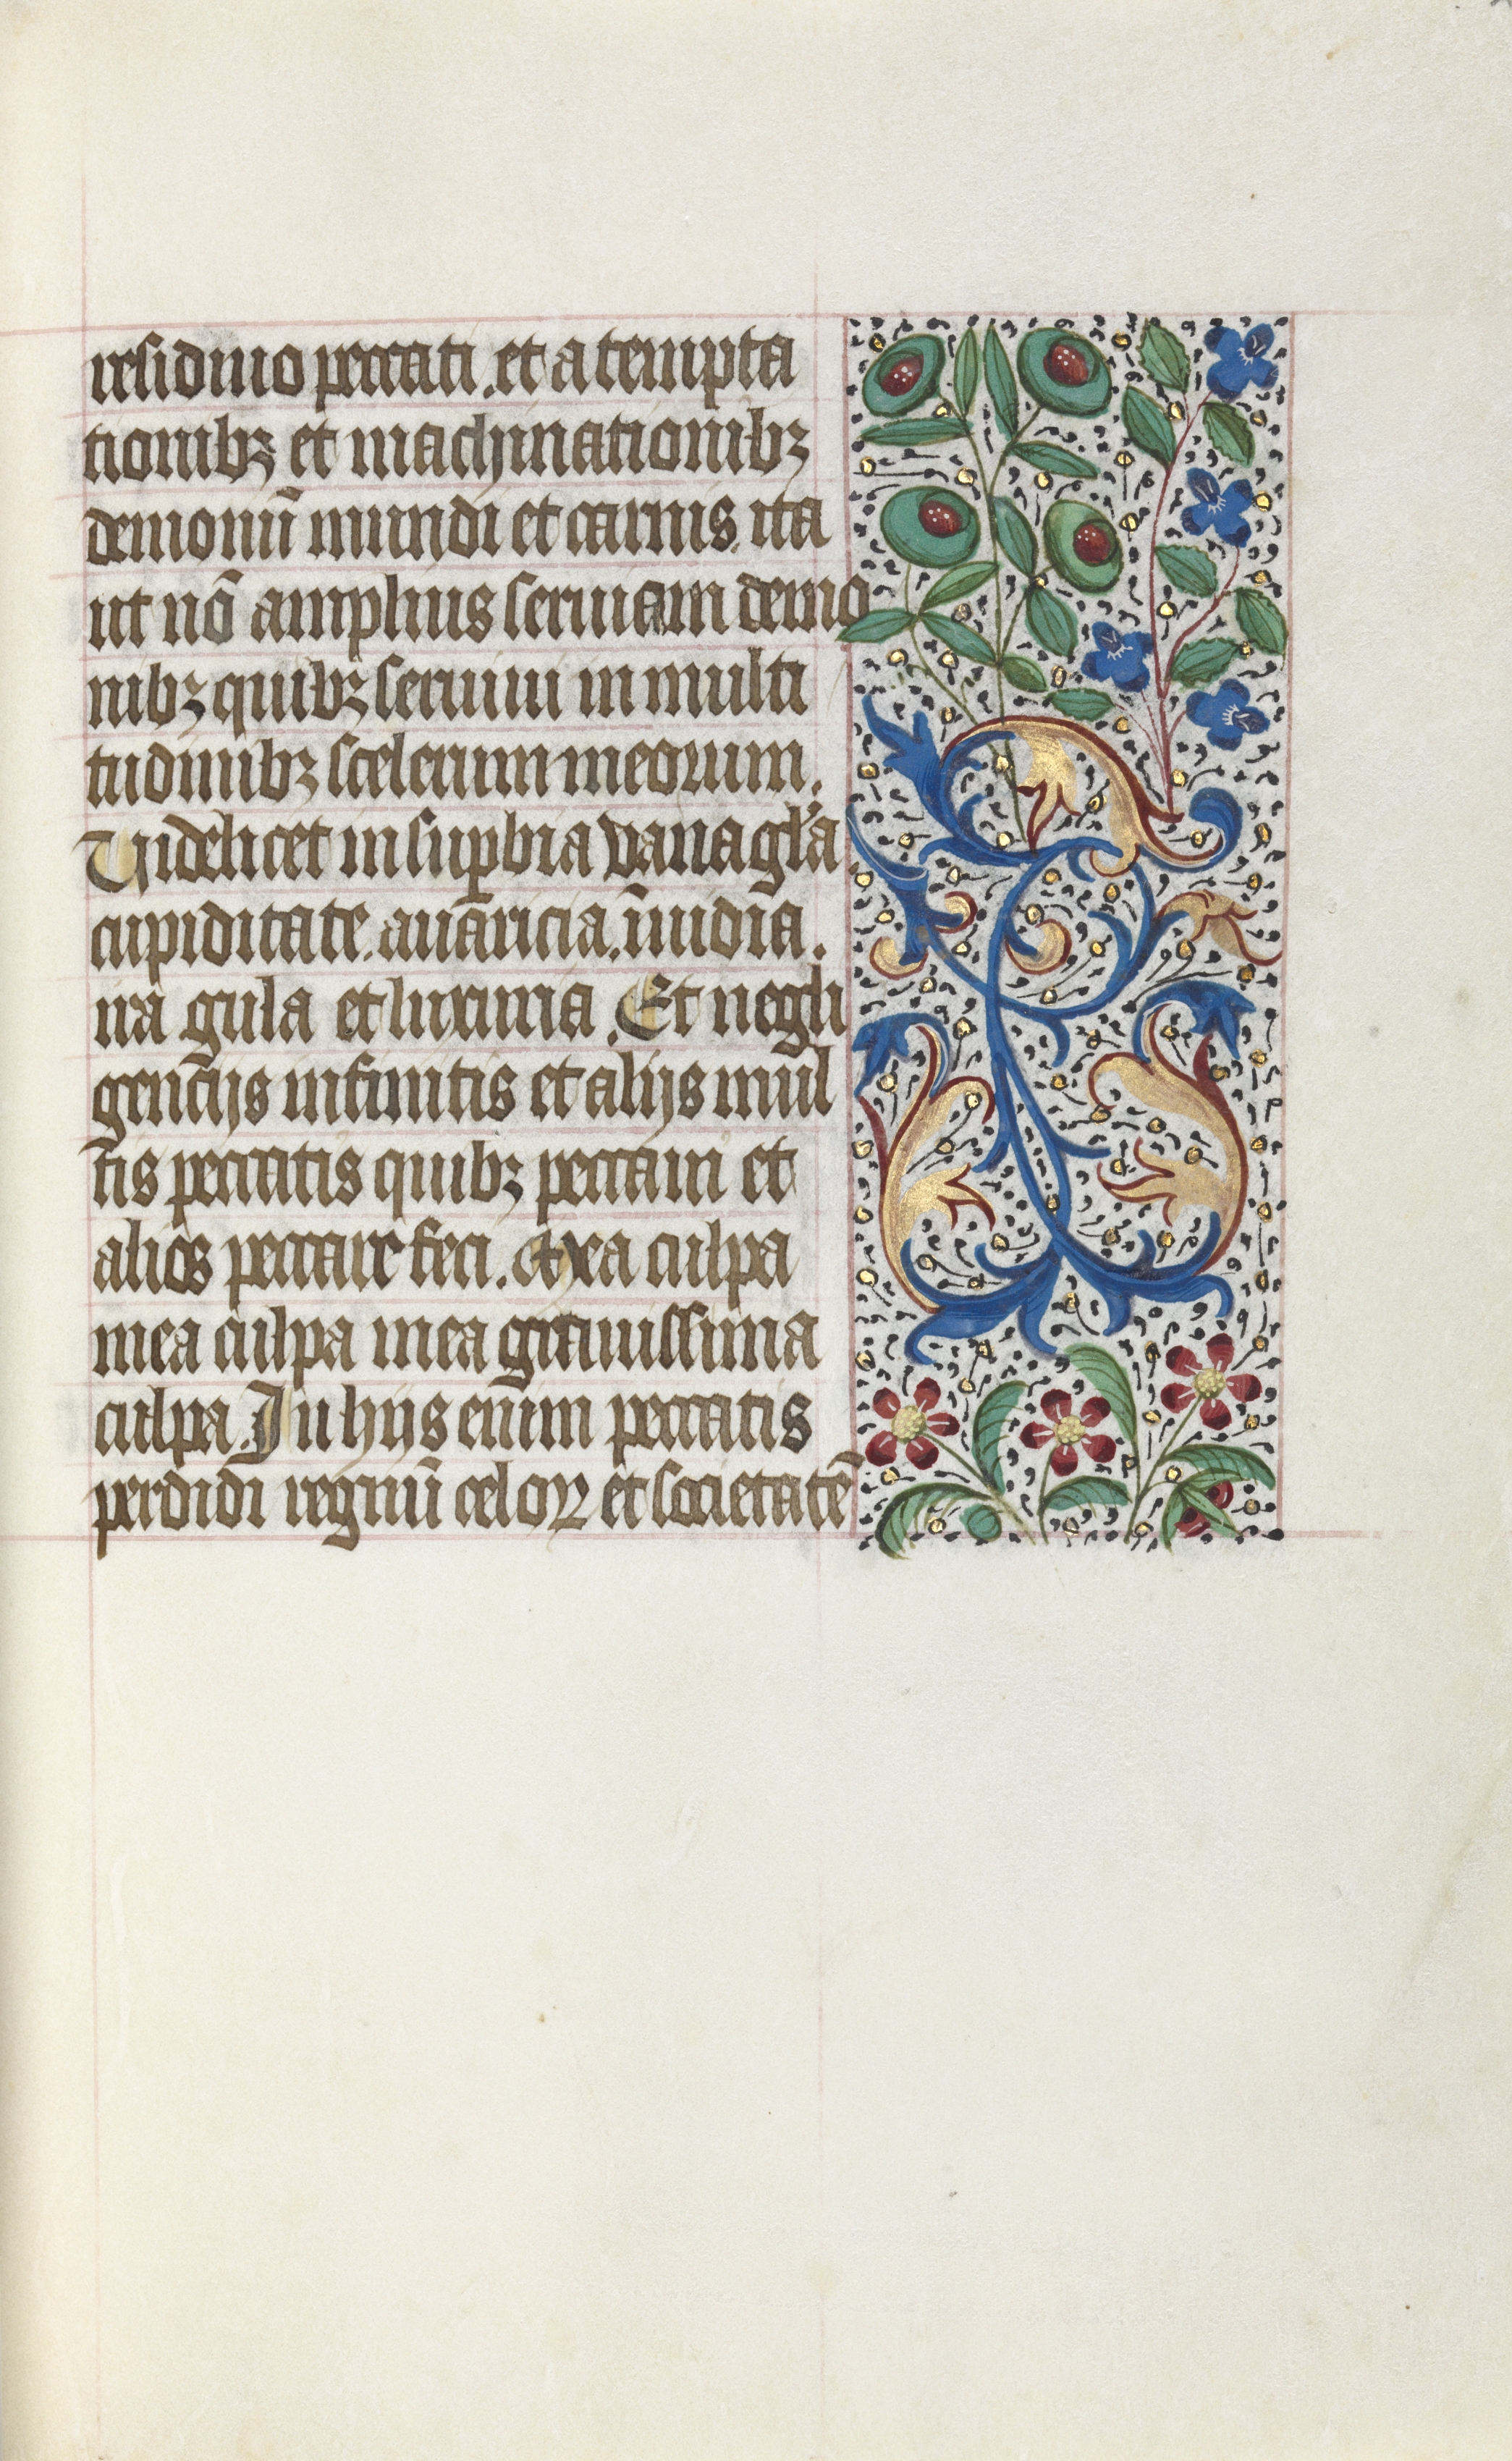 residuo peccati. et a tempta
tionibꝫ et machinationibꝫ
demonū mundi et carnis. ita
ut nō amplius seruiam demo
nibꝫ quibꝫ seruiui in multi
tudinibꝫ scelerum meorum.
Uidelicet in suꝑbia vana gl'a
cupiditate. auaricia. īuidia.
ira gula et luxuria. Et negli
gencijs infinitis et alijs mul
tis peccatis quibꝫ peccaui et
alios peccare feci. Mea culpa
mea culpa mea grauissima
culpa. In hijs enim peccatis
perdidi regnū celoꝝ et societatē